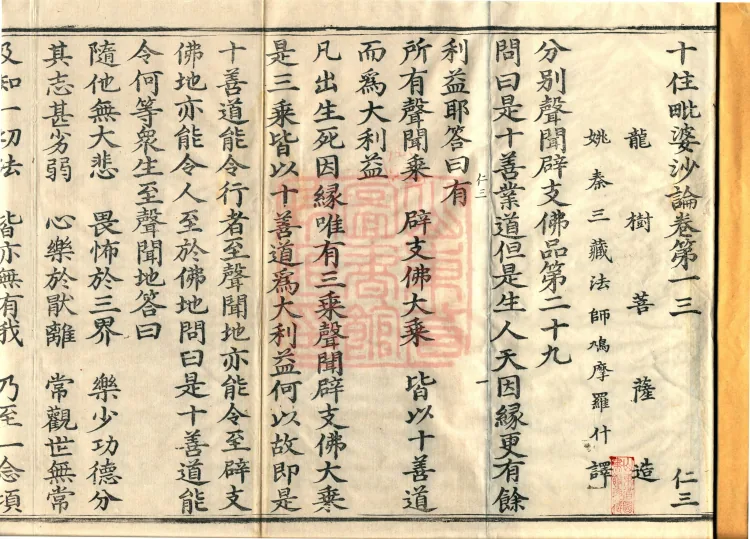 十住毗婆沙論卷第一三 仁三
龍樹菩薩造
姚秦三藏法師鳩摩羅什譯
分別聲聞辟支佛品第二十九
問曰是十善業道但是生人天因緣更有餘
仁三 一
利益耶答曰有
所有聲聞乘 辟支佛大乘 皆以十善道
而爲大利益
凡出生死因緣唯有三乘聲聞辟支佛大乘
是三乘皆以十善道爲大利益何以故即是
十善道能令行者至聲聞地亦能令至辟支
佛地亦能令人至於佛地問曰是十善道能
令何等衆生至聲聞地答曰
隨他無大悲 畏怖於三界 樂少功德分
其志甚劣弱 心樂於猒離 常觀世無常
及知一切法 皆亦無有我 乃至一念頃